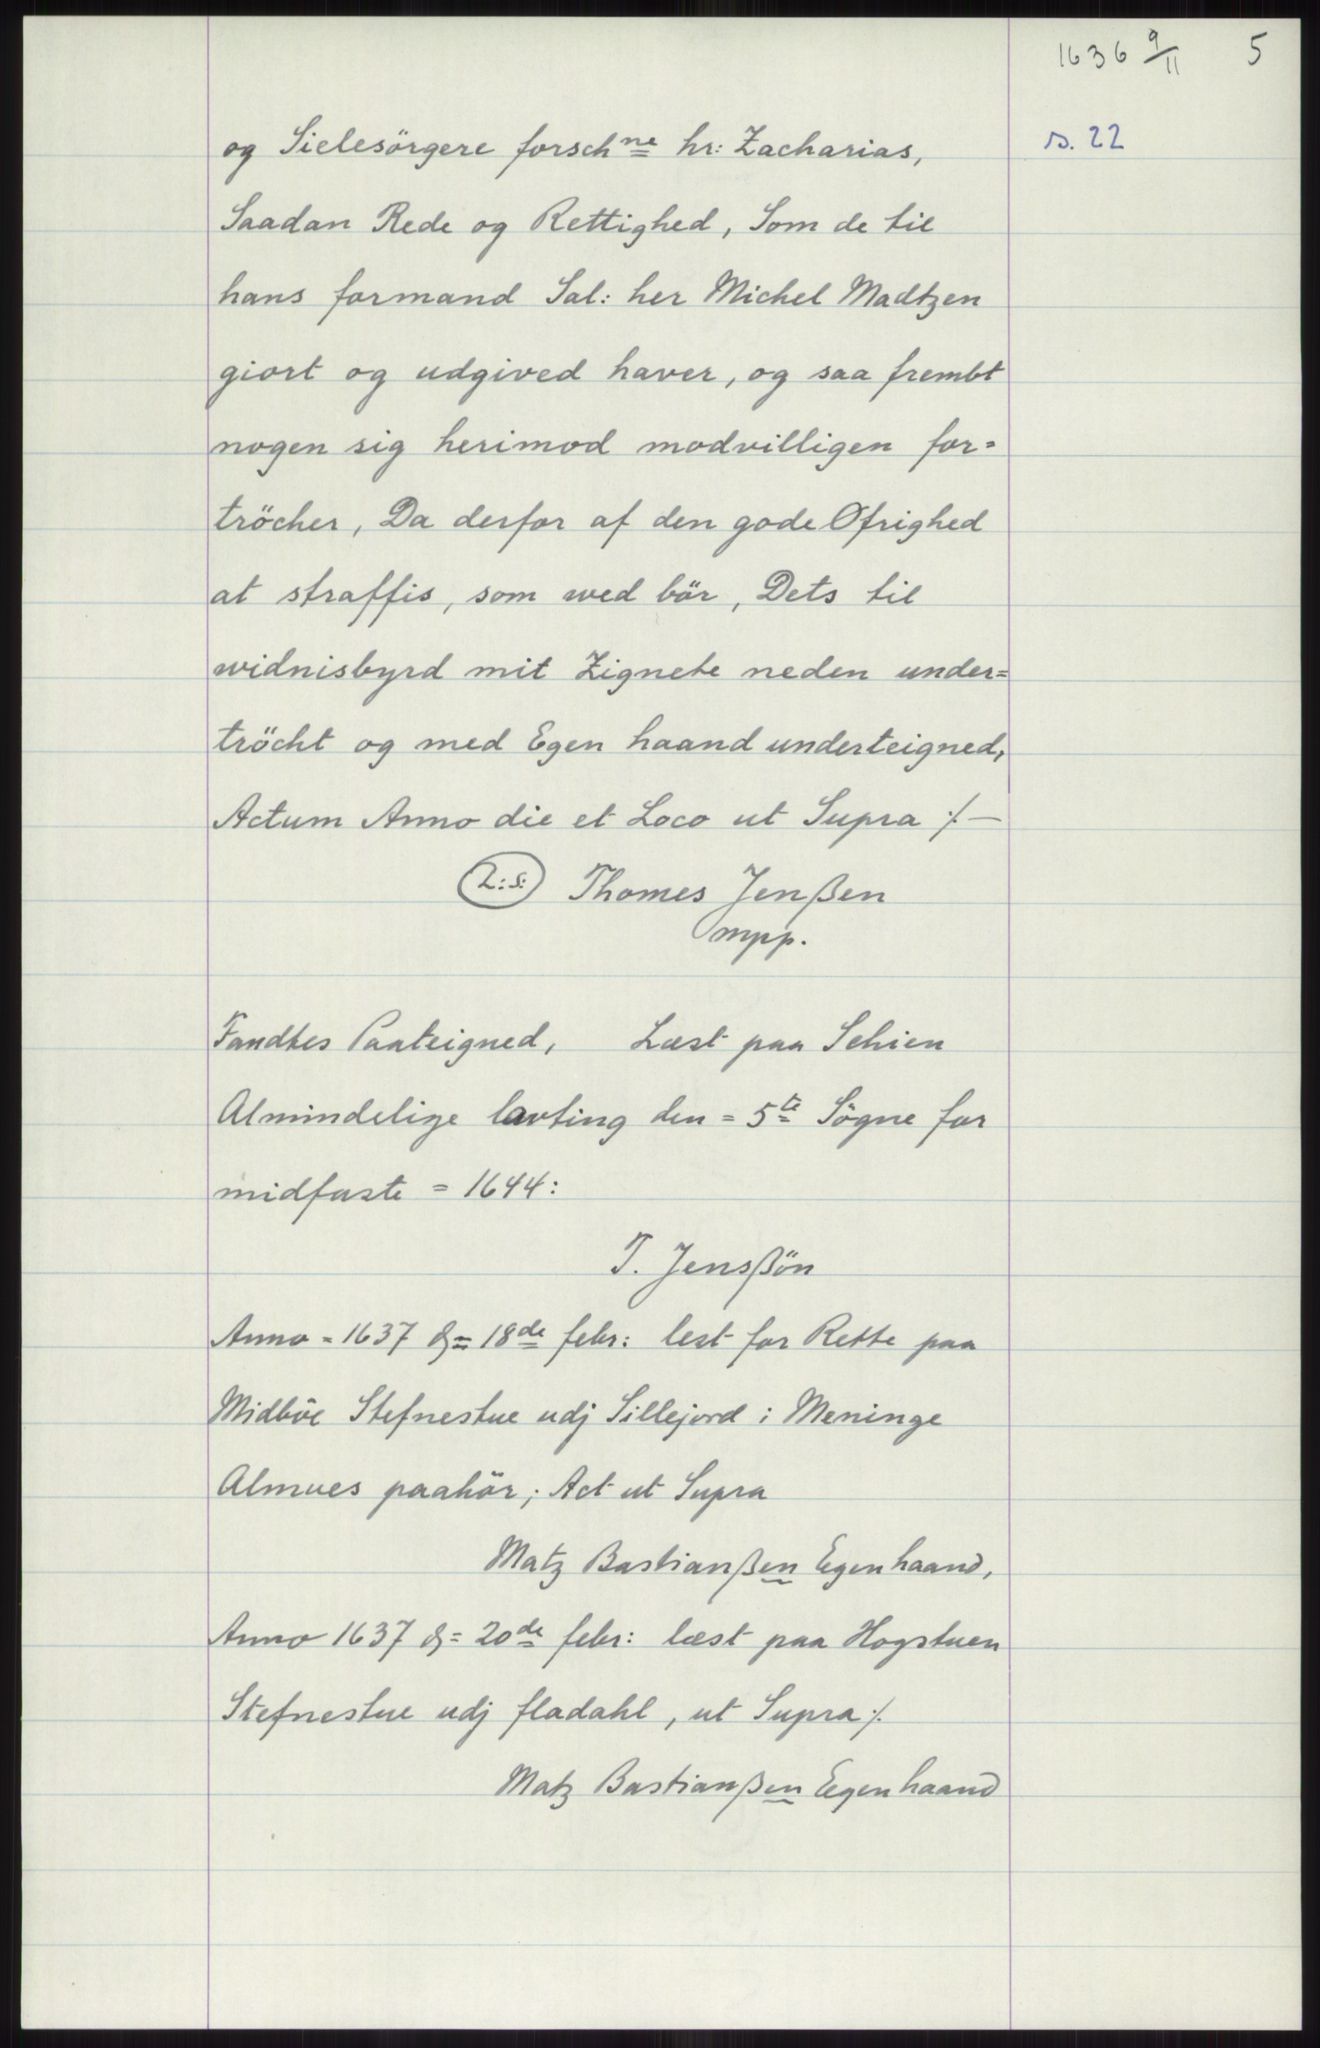 1636 9/11 5
s. 22
og Sielesörgere forschne hr: Zacharias,
Saadan Rede og Rettighed, Som de til
hans formand Sal: her Michel Madtzen
giort og udgived haver, og saa frembt
nogen sig herimod modvilligen for=
tröcher, Da derfor af den gode Øfrighed
at straffis, som wed bör, Dets til
widnisbyrd mit Zignete neden under=
tröcht og med Egen haand underteigned,
Actum Anno die et Loco ut Supra ⁒ —
L:S: Thomes Jenßen
mpp.
Fandtes Paateigned, Læst paa Schien
Almindelige lavting den = 5te Sögne for
midfaste = 1644:
T. Jensßön
Anno = 1637 d = 18de febr: lest for Rette paa
Midböe Stefnestue udj Sillejord i Meninge
Almues paahör; Act ut Supra
Matz Bastianßen Egenhaand,
Anno 1637 d = 20de febr: læst paa Hogstuen
Stefnestue udj fladahl, ut Supra ⁒
Matz Bastianßen Egenhaand